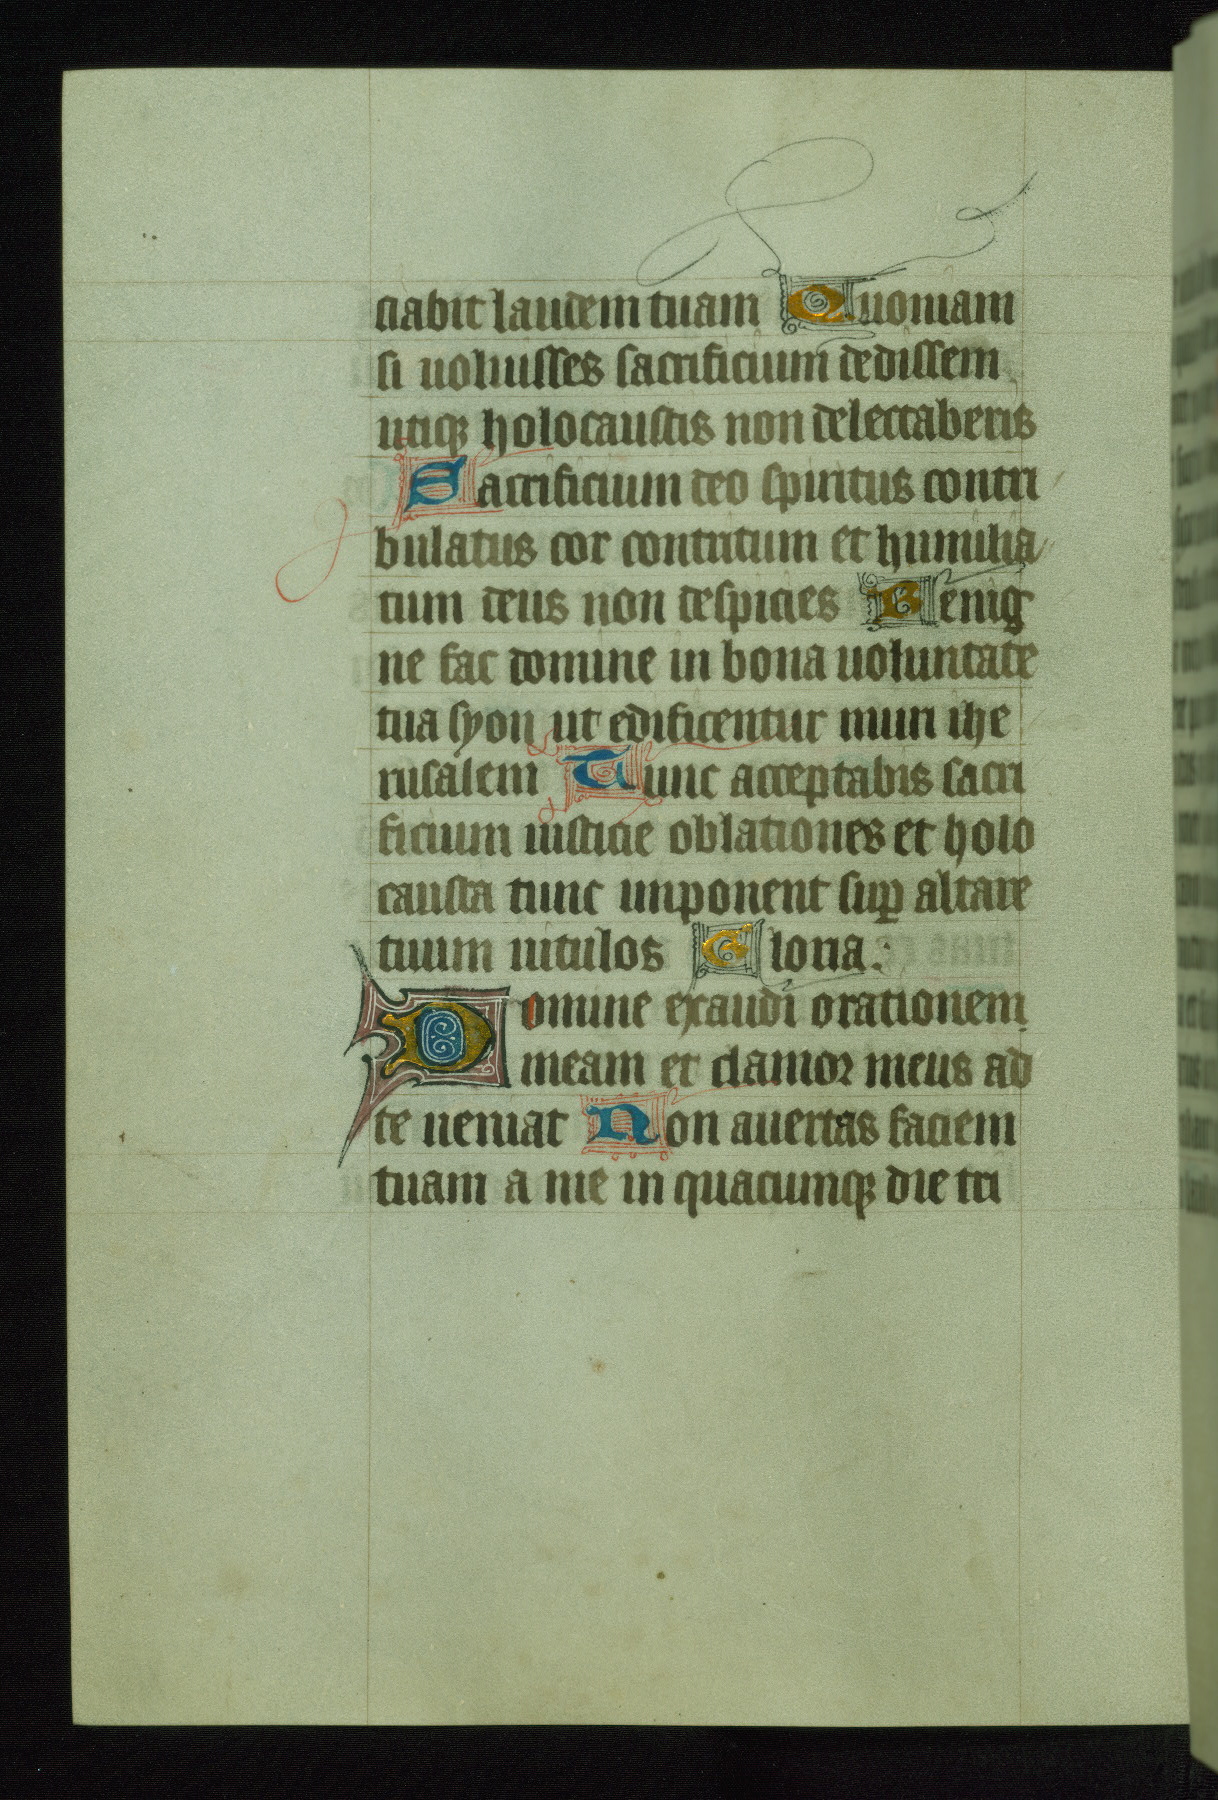 ciabit laudem tuam Quoniam
si uoluisses sacrificium dedissem
utiqꝫ holocaustis non delectaberis
Sacrificium deo spiritus contri
bulatus cor contritum et humilia
tum deus non despicies Benig
ne fac domine in bona uoluntate
tua syon ut edificentur muri ihe
rusalem Tunc acceptabis sacri
ficium iusticie oblationes et holo
causta tunc imponent suꝑ altare
tuum uitulos Gloria.
Domine exaudi orationem
meam et clamor meus ad
te ueniat Non auertas faciem
tuam a me in quacumqꝫ die tri